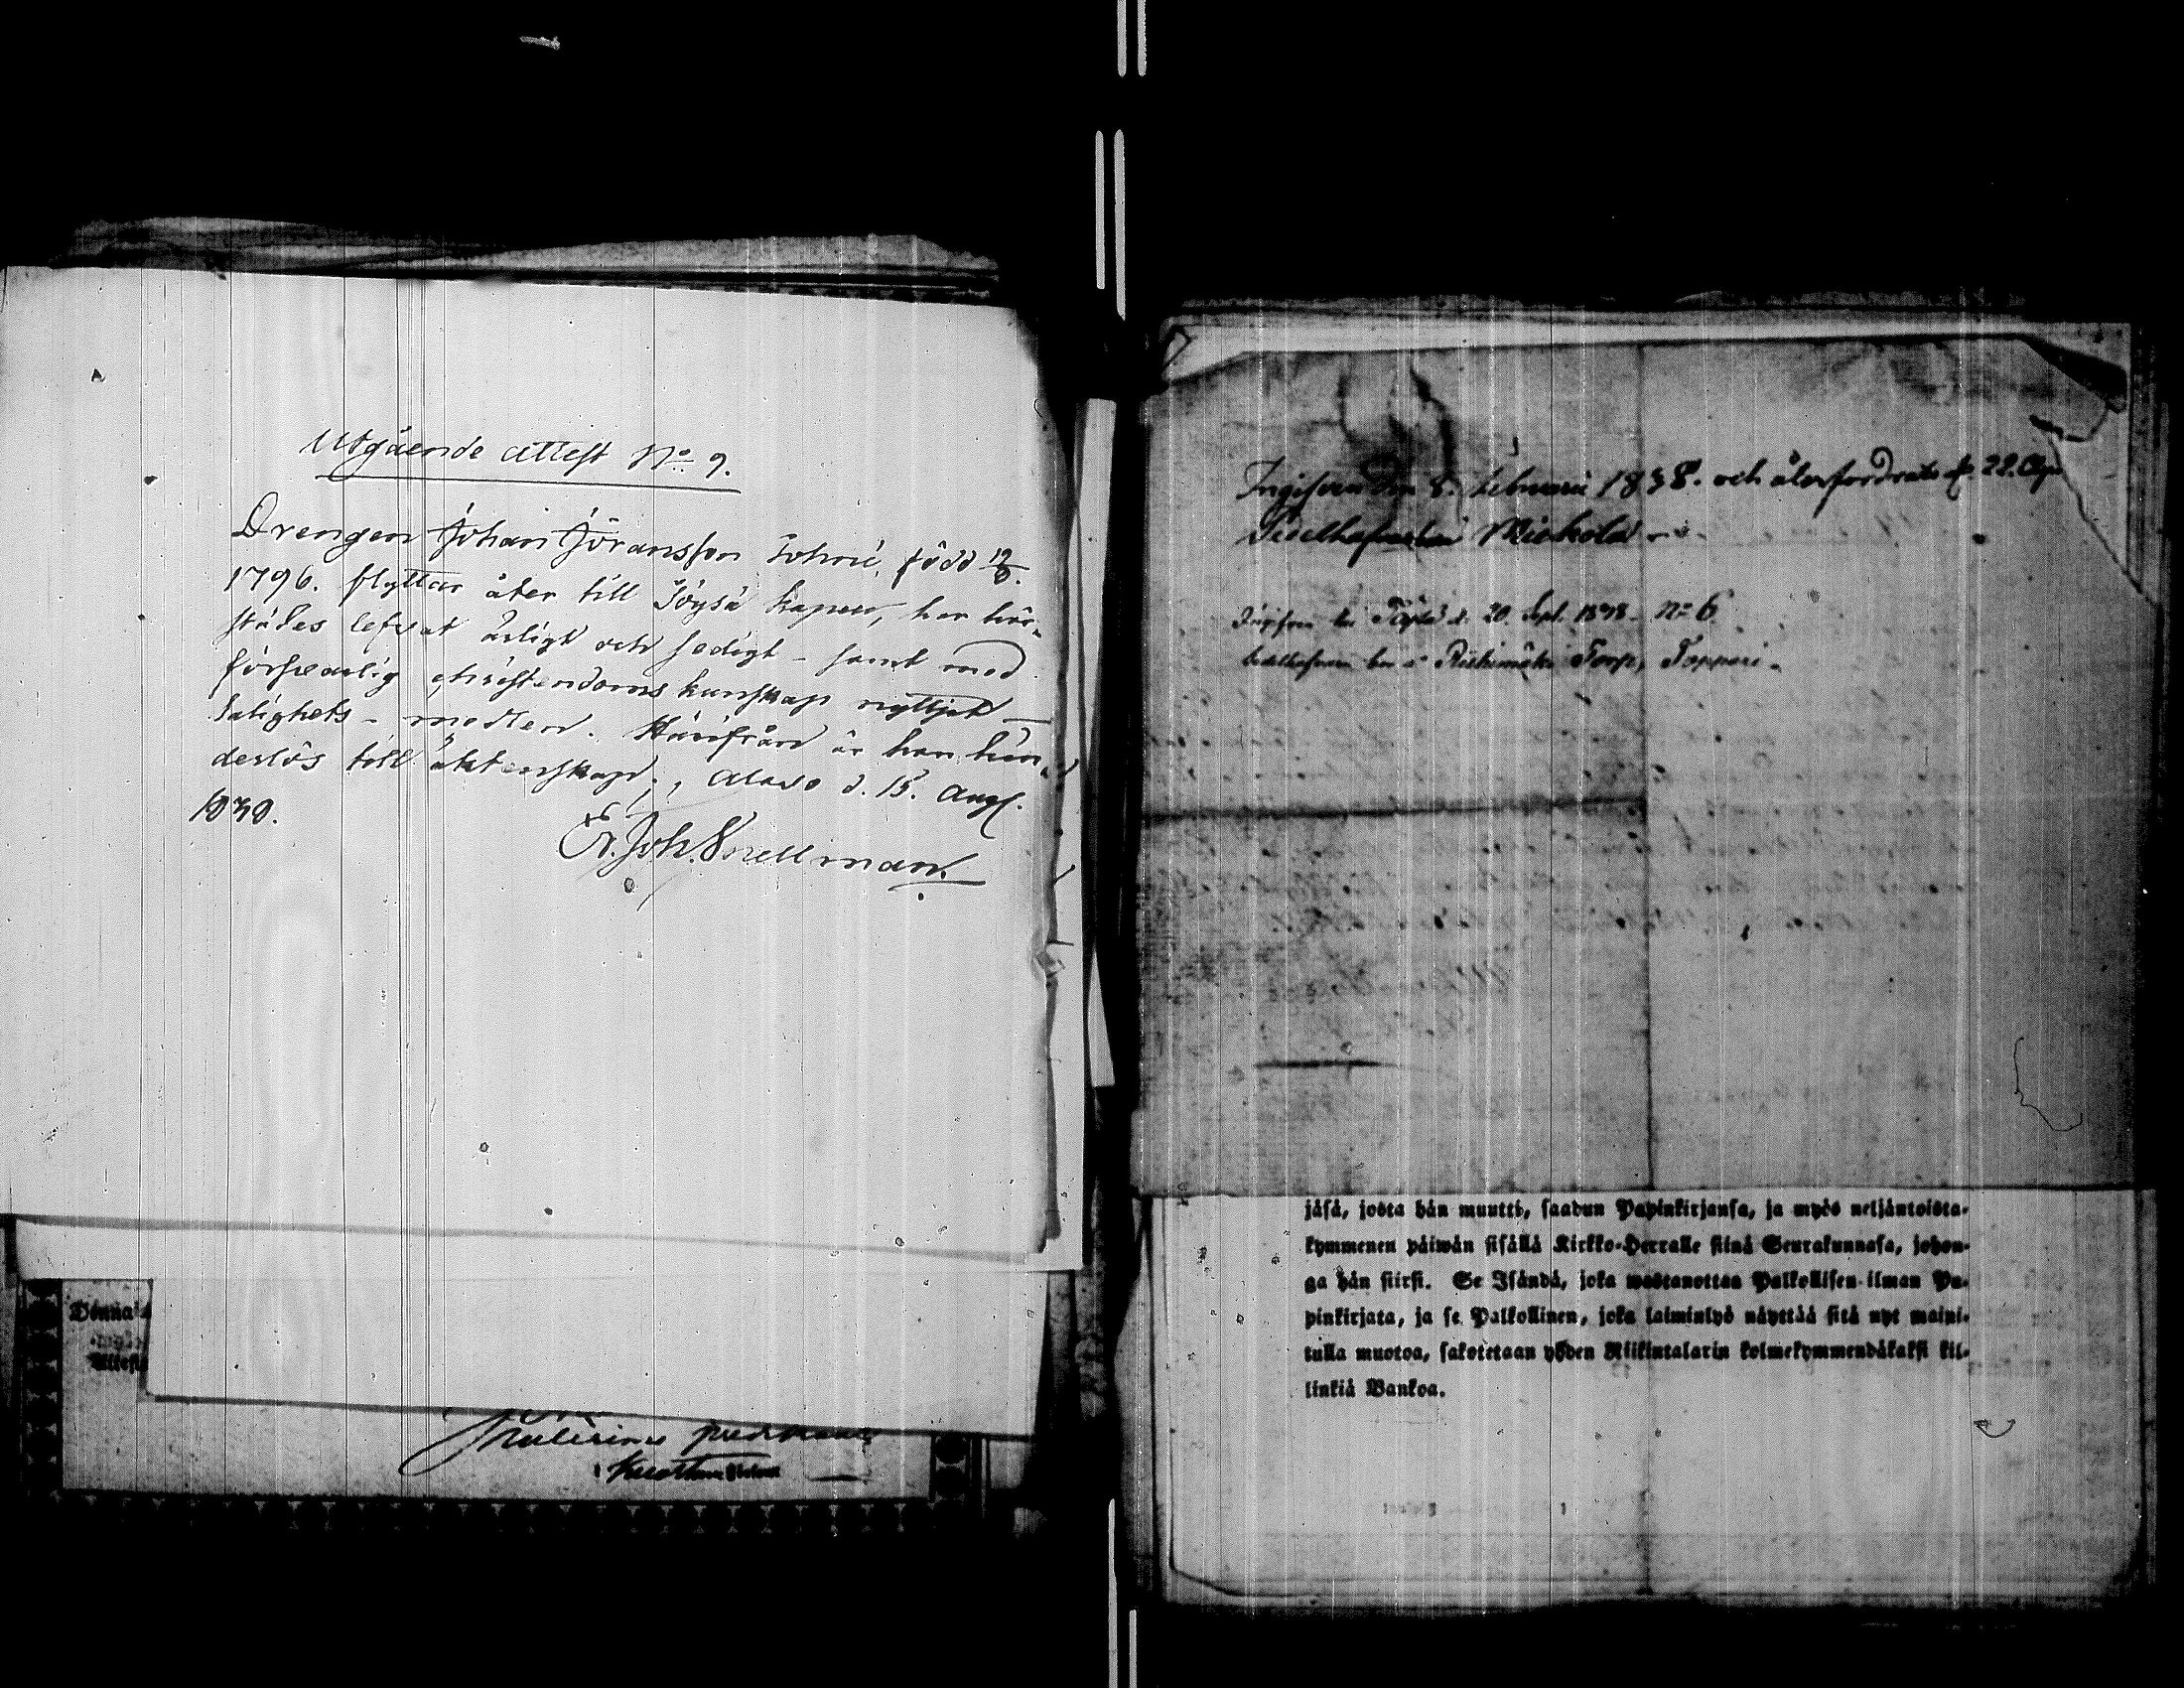 Utgående attest No 9.
Drengen Johan Jöransson född 12/8.
1796. flyttar åter till Töysä kapell, har här-
städes lefvat ärligt och sedigt - samt med
försvarlig christendoms kunskap nyttjat
Salighets - medlen. Härifrån är han hin-
derlös till äktenskap; Alavo d. 15. Aug.
1838.
Joh. Snellman.
Wänna
Attest
8. Februarii 1838. och återfordrats d. 22. Apr
Mickola
Töysä d. 20. Sept. 1838. No 6.
Riihimäki Torp, Topperi.
jäsä, josta hän muutti, saadun Papinkirjansa, ja myös neljäntoista-
kymmenen päiwän sisällä Kirkko-Herralle siinä Seurakunnasa, johon-
ga hän siirsi. Se Isändä, joka wastanottaa Palkollisen ilman Pa-
pinkirjata, ja se Palkollinen, joka laiminlyö näyttää sitä nyt maini-
tulla muotoa, sakotetaan yhden Riikintalarin kolmekymmendäkaksi kil-
linkiä Bankoa.